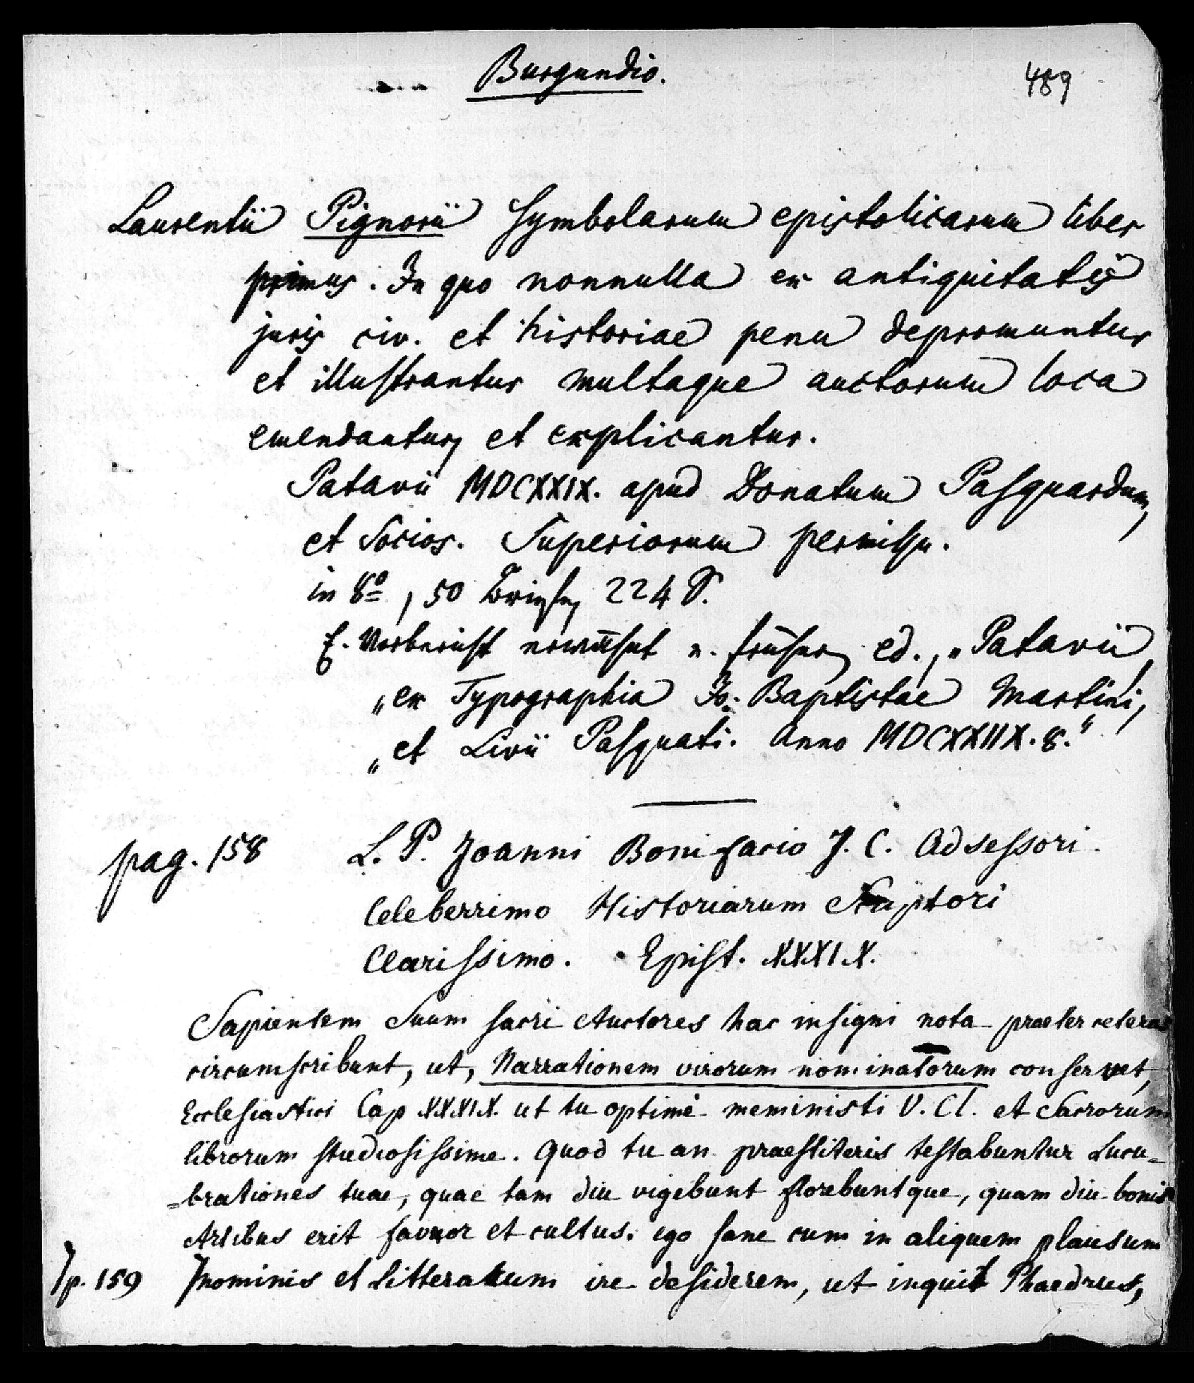 Burgundio.
489
Laurentii Pignorii symbolarum epistolicarum liber
primus. In quo nonnulla ex antiquitatis
juris civ. et historiae penu depromuntur
et illustrantur multaque auctorum loca
emendantur et explicantur.
Patavii MDCXXIX. apud Donatum Pasquardum,
et Socios. Superiorum permissu.
in 8º, 50 Briefe, 224 S.
E. Vorbericht erwähnt e. frühere ed., „Patavii,
„ex Typographia Jo: Baptistae Martini,
„et Livii Pasquati. Anno MDCXXIIX. 8.“
pag. 158
L. P. Joanni Bonifacio J. C. Adsessori
Celeberrimo Historiarum Scriptori
Clarissimo. Epist. XXXIX.
Sapientem Suum sacri Auctores hac insigni nota praeter ceteras
circumscribunt, ut, Narrationem virorum nominatorum conservet,
Ecclesiastici Cap XXXIX. ut tu optimè meministi V. Cl. et Sacrorum
librorum studiosissime. Quod tu an praestiteris testabuntur Lucu-
-brationes tuae, quae tam diu vigebunt florebuntque, quam diu bonis
Artibus erit favor et cultus. ego sane cum in aliquem plausum
p. 159
nominis et Litteratum ire desiderem, ut inquit Phaedrus,